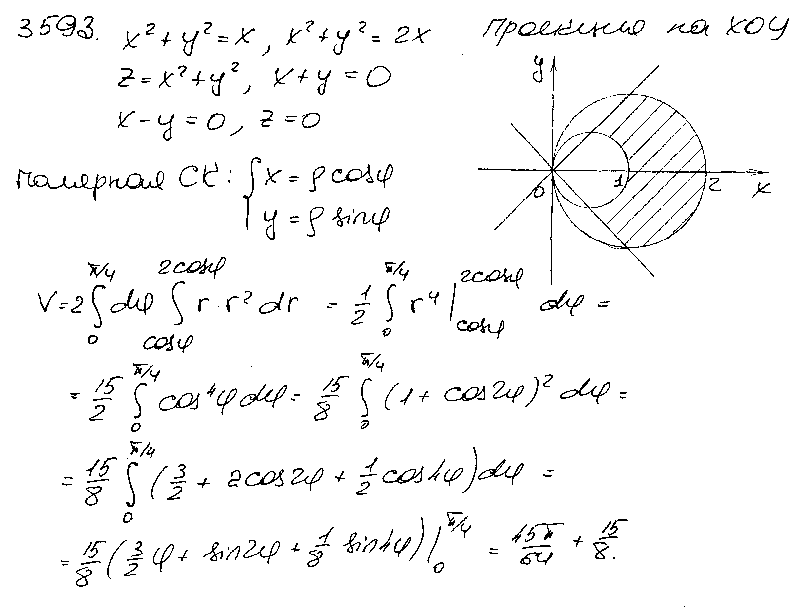 3593. x² + y² = x, x² + y² = 2x
Проекция на XOY
z = x² + y², x + y = 0
x - y = 0, z = 0
y
0 1 2 x
полярная СК: { x = ρ cosφ
y = ρ sinφ
V = 2 ∫₀^{π/4} dφ ∫_{cosφ}^{2cosφ} r · r² dr = 1/2 ∫₀^{π/4} r⁴ |_{cosφ}^{2cosφ} dφ =
= 15/2 ∫₀^{π/4} cos⁴φ dφ = 15/8 ∫₀^{π/4} (1 + cos2φ)² dφ =
= 15/8 ∫₀^{π/4} (3/2 + 2cos2φ + 1/2 cos4φ) dφ =
= 15/8 (3/2 φ + sin2φ + 1/8 sin4φ) |₀^{π/4} = 45π/64 + 15/8.